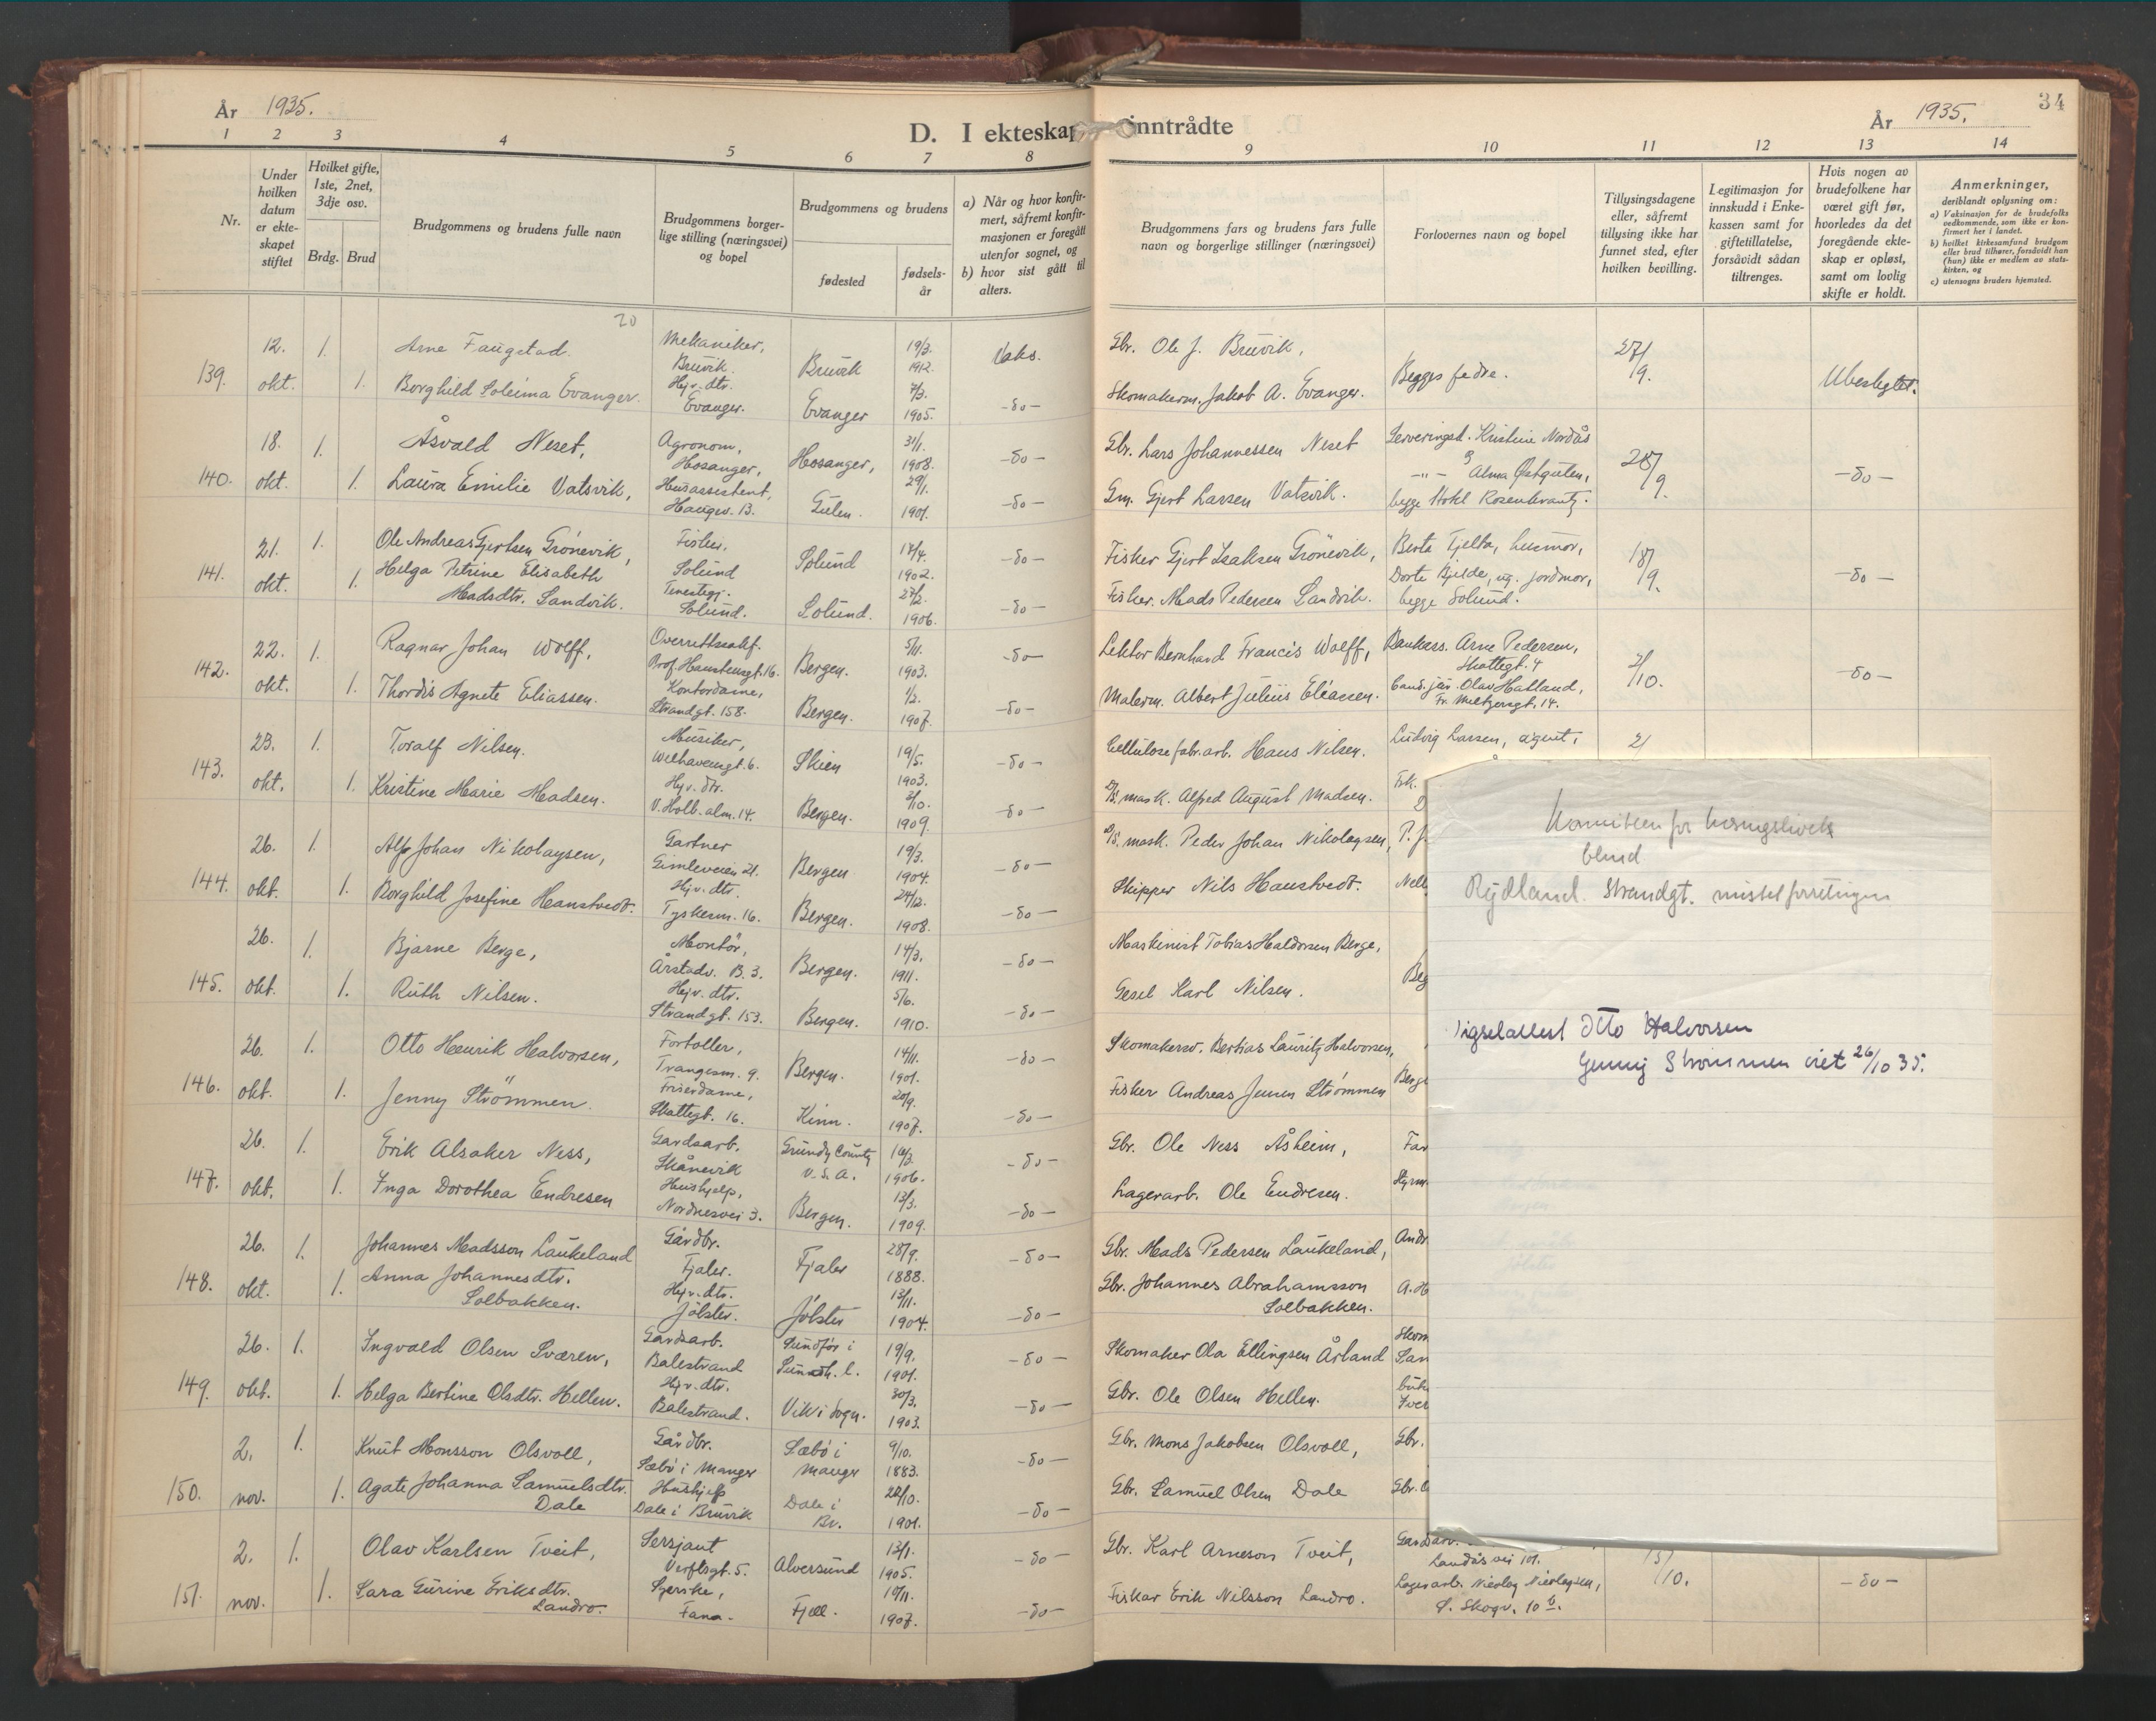 34
År 1935.
D. I ekteskap inntrådte
År 1935.
1 2 3 4 5 6 7 8 9 10 11 12 13 14
Nr.
Under hvilken datum er ekteskapet stiftet
Hvilket gifte, 1ste, 2net, 3dje osv.
Brdg. Brud
Brudgommens og brudens fulle navn
Brudgommens borgerlige stilling (næringsvei) og bopel
Brudgommens og brudens
fødested
fødselsår
a) Når og hvor konfirmert, såfremt konfirmasjonen er foregått utenfor sognet, og
b) hvor sist gått til alters.
Brudgommens fars og brudens fars fulle navn og borgerlige stillinger (næringsvei)
Forlovernes navn og bopel
Tillysingsdagene eller, såfremt tillysing ikke har funnet sted, efter hvilken bevilling.
Legitimasjon for innskudd i Enkekassen samt for giftetillatelse, forsåvidt sådan tiltrenges.
Hvis nogen av brudefolkene har været gift før, hvorledes da det foregående ekteskap er opløst, samt om lovlig skifte er holdt.
Anmerkninger, deriblandt oplysning om:
a) Vaksinasjon for de brudefolks vedkommende, som ikke er konfirmert her i landet.
b) hvilket kirkesamfund brudgom eller brud tilhører, forsåvidt han (hun) ikke er medlem av statskirken, og
c) utensogns bruders hjemsted.
20
139. 12. okt. 1. Arne Faugstad. Mekaniker, Bruvik. Bruvik 19/3. 1912. Vaks. Gbr. Ole J. Bruvik, Begges fedre. 27/9. Ubeslegtet.
1. Borghild Soleima Evanger. Hjv. dtr. Evanger. Evanger 7/3. 1905. -do- Skomakerm. Jakob A. Evanger.
140. 18. okt. 1. Åsvald Neset, Agronom, Hosanger, Hosanger, 31/1. 1908. -do- Gbr. Lars Johannessen Neset Serveringsd. Kristine Nordås 28/9. -do-
1. Laura Emilie Vatsvik, Husassistent, Haugev. 13. Gulen. 29/1. 1901. -do- Gm. Gjert Larsen Vatsvik. -"- og Alma Østgulen, begge Hotel Rosenkrantz.
141. 21. okt. 1. Ole Andreas Gjertsen Grönevik, Fisker, Solund Solund 17/4. 1902. -do- Fisker Gjert Isaksen Grönevik, Berta Tjelta, husmor, 18/9. -do-
1. Helga Petrine Elisabeth Madsdtr. Sandvik. Tenestegj. Solund. Solund. 27/2. 1906. -do- Fisker. Mads Pedersen Sandvik. Dorte Bjelde, ug. jordmor, begge Solund.
142. 22. okt. 1. Ragnar Johan Wolff, Overrettssakf. Prof. Hansteensgt. 16. Bergen. 5/11. 1903. -do- Lektor Bernhard Francis Wolff, Bankass. Arne Pedersen, Skottegt. 4 2/10. -do-
1. Thordis Agnete Eliassen. Kontordame, Strandgt. 158. Bergen. 1/2. 1907. -do- Malerm. Albert Julius Eliassen. Cand. jur. Olav Hatland, Fr. Meltzersgt. 14.
143. 23. okt. 1. Toralf Nilsen. Musiker, Welhavensgt. 6. Skien 19/5. 1903. -do- Cellulosefabr. arb. Hans Nilsen. Ludvig Larsen, agent, 2/
1. Kristine Marie Madsen. Hjv. dtr. V. Holb. alm. 14. Bergen. 2/10. 1909. -do- D/S. mask. Alfred August Madsen. Frk.
144. 26. okt. 1. Alf Johan Nikolaysen, Gartner Gimleveien 21. Bergen 19/3. 1904. -do- D/S. mask. Peder Johan Nikolaysen, P. J.
1. Borghild Josefine Hanstvedt. Hjv. dtr. Tyskesm. 16. Bergen. 24/12. 1908. -do- Skipper Nils Hanstvedt. Nell
145. 26. okt. 1. Bjarne Berge, Montör, Årstadv. B. 3. Bergen. 14/3. 1911. -do- Maskinist Tobias Haldorsen Berge,
1. Ruth Nilsen. Hjv. dtr. Strandgt. 153. Bergen. 5/6. 1910. -do- Gesel Karl Nilsen. Beg
146. 26. okt. 1. Otto Henrik Halvorsen, Fortoller, Trangesm. 9. Bergen. 14/11. 1901. -do- Skomakersv. Bertias Lauritz Halvorsen,
1. Jenny Strömmen. Friserdame, Skottegt. 16. Kinn. 20/9. 1907. -do- Fisker Andreas Jensen Strömmen Berge
147. 26. okt. 1. Erik Alsaker Ness, Gardsarb. Skånevik Grundy County U.S.A. 16/2. 1906. -do- Gbr. Ole Ness Åsheim, Far
1. Inga Dorothea Endresen Hushjelp, Nordnesvei 3. Bergen. 13/3. 1909. -do- Lagerarb. Ole Endresen. Styrm.
148. 26. okt. 1. Johannes Madsson Laukeland Gårdbr. Fjaler. Fjaler 28/9. 1888. -do- Gbr. Mads Pedersen Laukeland, Andr
1. Anna Johannesdtr. Solbakken. Hjv. dtr. Jölster. Jölster 13/11. 1904. -do- Gbr. Johannes Abrahamsson Solbakken. A. H
149. 26. okt. 1. Ingvald Olsen Sværen, Gardsarb. Balestrand 19/9. 1901. -do- Skomaker Ola Ellingsen Årland
1. Helga Bertine Olsdtr. Hellen. Hjv. dtr. Balestrand. Vik i Sogn. 30/3. 1903. -do- Gbr. Ole Olsen Hellen.
150. 2. nov. 1. Knut Monsson Olsvoll, Gårdbr. Sæbö i Manger Sæbö i Manger 9/10. 1883. -do- Gbr. Mons Jakobsen Olsvoll, Gbr.
1. Agate Johanna Samuelsdtr. Dale Hushjelp Dale i Bruvik Dale i Br. 28/10. 1901. -do- Gbr. Samuel Olsen Dale Gbr. O
151. 2. nov. 1. Olav Karlsen Tveit, Sersjant Verftsgt. 5. Alversund 13/1. 1905. -do- Gbr. Karl Arneson Tveit, Gardsarb. Landåsvei 101. 15/10. -do-
1. Sara Gurine Eriksdtr. Landro. Syerske, Fana. Fjell. 19/11. 1907. -do- Fiskar Erik Nilsson Landro. Lagerarb. Nicolay Nicolaysen, S. Skogv. 10 b.
Komiteen for
blind
Rydland. Strandgt. mistet forretningen
igselattest Otto Halvorsen
Jenny Strømmen viet 26/10 35.